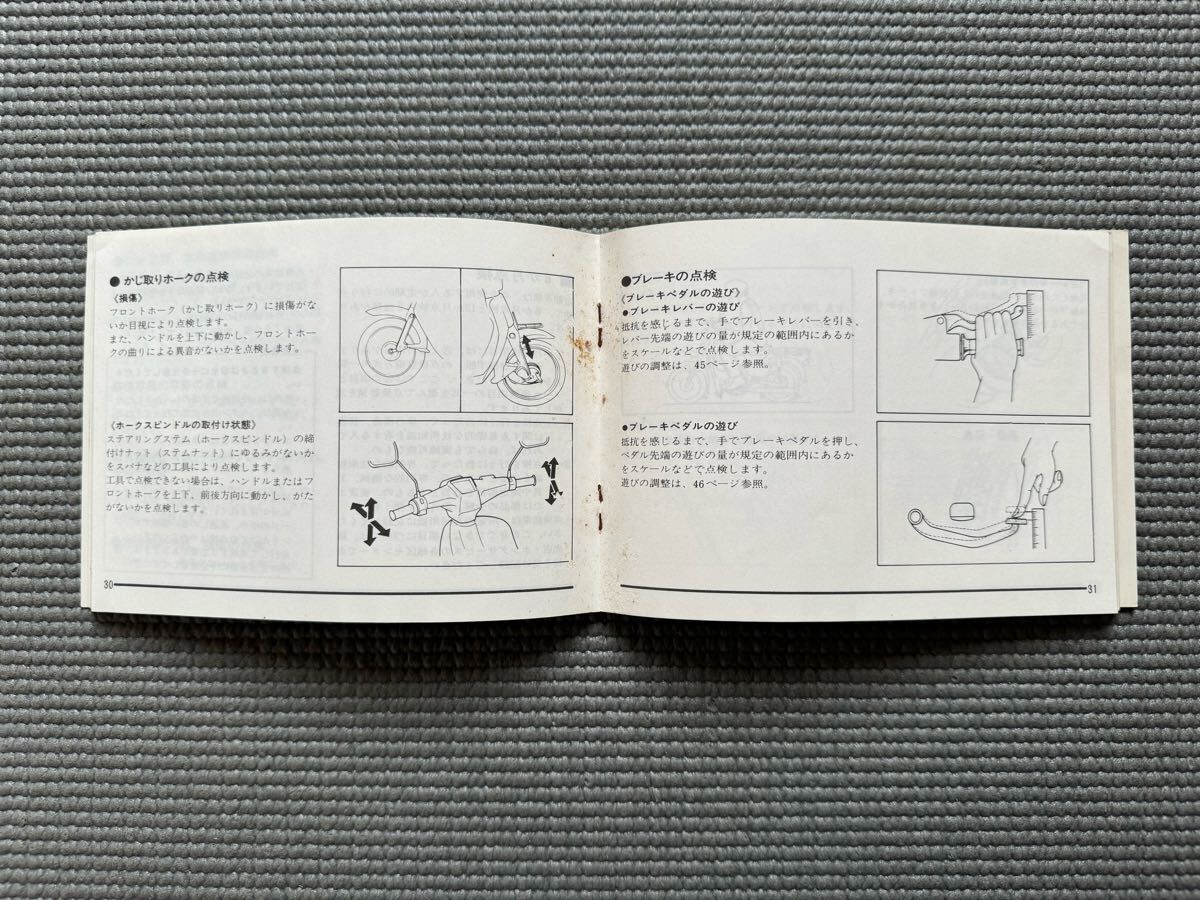 ●かじ取りホークの点検
《損傷》
フロントホーク（かじ取りホーク）に損傷がな
いか目視により点検します。
また、ハンドルを上下に動かし、フロントホー
クの曲りによる異音がないかを点検します。
《ホークスピンドルの取付け状態》
ステアリングステム（ホークスピンドル）の締
付けナット（ステムナット）にゆるみがないか
をスパナなどの工具により点検します。
工具で点検できない場合は、ハンドルまたはフ
ロントホークを上下、前後方向に動かし、がた
がないかを点検します。
30
●ブレーキの点検
《ブレーキペダルの遊び》
●ブレーキレバーの遊び
抵抗を感じるまで、手でブレーキレバーを引き、
レバー先端の遊びの量が規定の範囲内にあるか
をスケールなどで点検します。
遊びの調整は、45ページ参照。
●ブレーキペダルの遊び
抵抗を感じるまで、手でブレーキペダルを押し、
ペダル先端の遊びの量が規定の範囲内にあるか
をスケールなどで点検します。
遊びの調整は、46ページ参照。
31